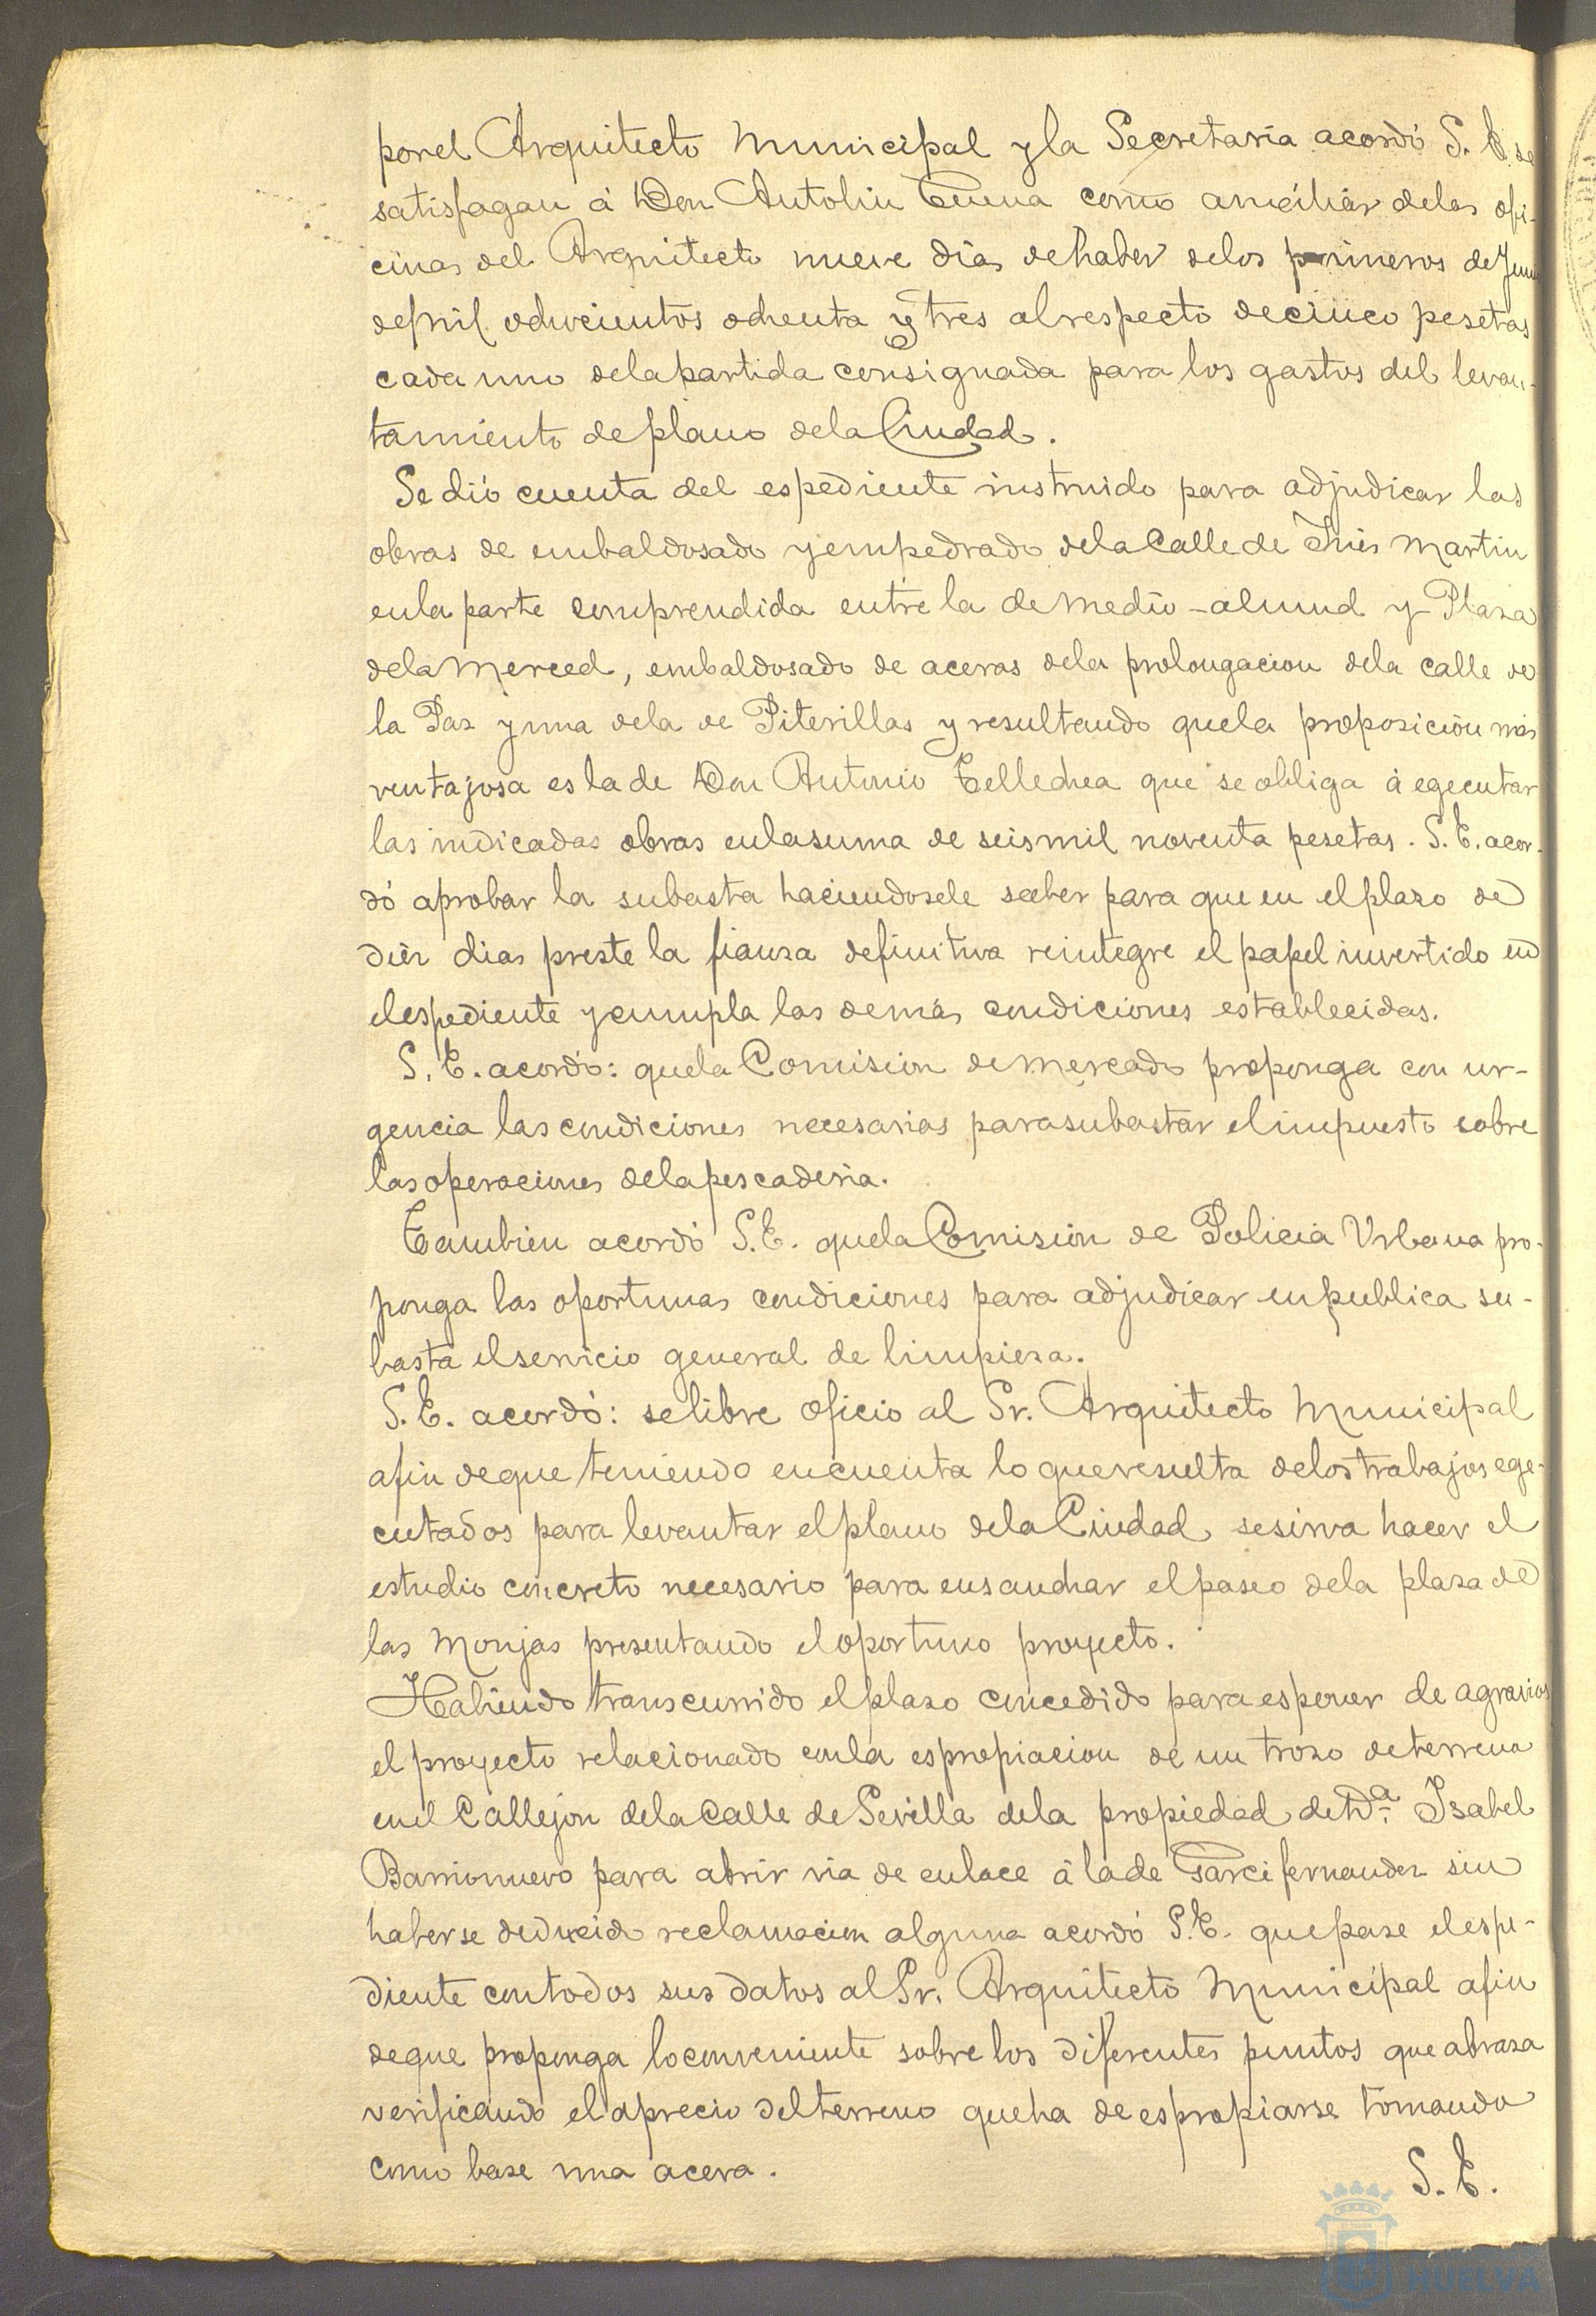 por el Arquitecto Municipal y la Secretaría acordó S. E. se
satisfagan á Don Antolin Cuena como auxiliar de las ofi-
cinas del Arquitecto nueve dias de haber de los primeros de Juni
de mil ochocientos ochenta y tres al respecto de cinco pesetas
cada uno de la partida consignada para los gastos del levan-
tamiento de plano de la Ciudad.
Se dió cuenta del espediente instruido para adjudicar las
obras de embaldosado y empedrado de la Calle de Ynés Martin
en la parte comprendida entre la de Medio-almud y Plaza
de la Merced, embaldosado de aceras de la prolongacion de la calle de
la Paz y una de la de Piterillas y resultando que la proposición más
ventajosa es la de Don Antonio Tellechea que se obliga á egecutar
las indicadas obras en la suma de seis mil noventa pesetas. S. E. acor-
dó aprobar la subasta haciendosele saber para que en el plazo de
diez dias preste la fianza definitiva reintegre el papel invertido en
el espediente y cumpla las demás condiciones establecidas.
S. E. acordó: que la Comision de Mercado proponga con ur-
gencia las condiciones necesarias para subastar el impuesto sobre
las operaciones de la pescadería.
Tambien acordó S. E. que la Comision de Policia Urbana pro-
ponga las oportunas condiciones para adjudicar en publica su-
basta el servicio general de limpieza.
S. E. acordó: se libre oficio al Sr. Arquitecto Municipal
a fin de que teniendo en cuenta lo que resulta de los trabajos ege-
cutados para levantar el plano de la Ciudad, se sirva hacer el
estudio concreto necesario para ensanchar el paseo de la plaza de
las Monjas presentando el oportuno proyecto.
Habiendo transcurrido el plazo concedido para esponer de agravios
el proyecto relacionado con la espropiacion de un trozo de terreno
en el Callejon de la Calle de Sevilla de la propiedad de Dª. Ysabel
Barrionuevo para abrir via de enlace á la de Garcifernandez sin
haberse deducido reclamacion alguna acordó S. E. que pase el espe-
diente con todos sus datos al Sr. Arquitecto Municipal a fin
de que proponga lo conveniente sobre los diferentes puntos que abraza
verificando el aprecio del terreno que ha de espropiarse tomando
como base una acera.
S. E.
HUELVA